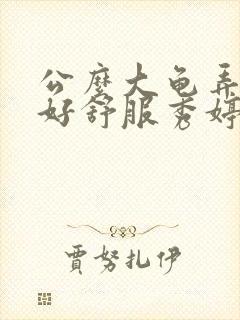 公麽大龟弄
好舒服秀婷
贾努扎伊